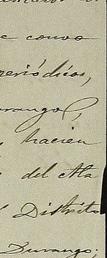 e convo
periódicos,
urango,
hacien
del Ma
Distrito
Durango;